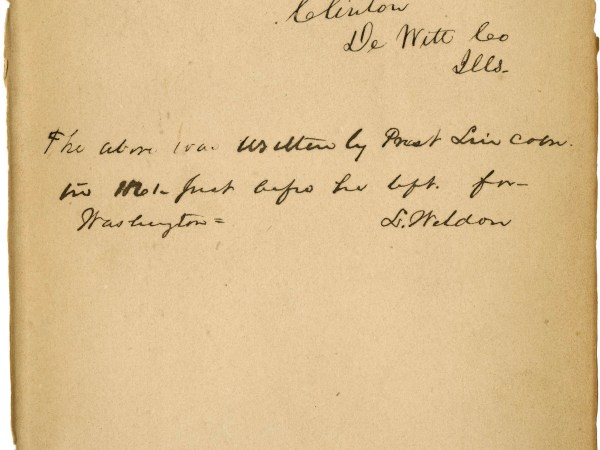 Clinton
De Witt Co
Ills-
The above was written by Prest Lincoln.
in 1861 just before he left for
Washington=    L. Weldon